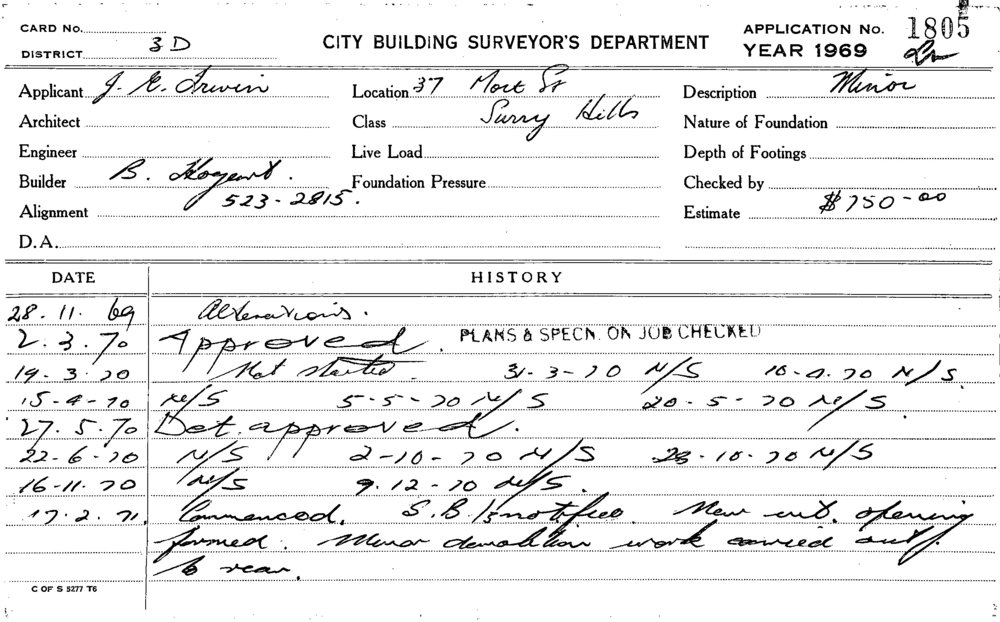 CARD No. APPLICATION No. 1805
DISTRICT 3 D CITY BUILDING SURVEYOR'S DEPARTMENT YEAR 1969
Applicant J. E. Irwin Location 37 Mort St Description Minor
Architect Class Surry Hills Nature of Foundation
Engineer Live Load Depth of Footings
Builder B. Foundation Pressure Checked by
Alignment 523-2815. Estimate $750-00
D.A.
DATE HISTORY
28. 11. 69 Alterations.
2. 3. 70 Approved. PLANS & SPECN. ON JOB CHECKED
19-3-70 Not started. 31-3-70 N/S 10-4-70 N/S.
15-4-70 N/S 5-5-70 N/S 20-5-70 N/S.
27. 5. 70 Det. approved.
22-6-70 N/S 2-10-70 N/S 23-10-70 N/S
16-11-70 N/S 9.12-70 N/S.
17.2.71. Commenced. S.B. notified. New int. opening
formed. Minor demolition work carried out
to rear.
C OF S 5277 T6